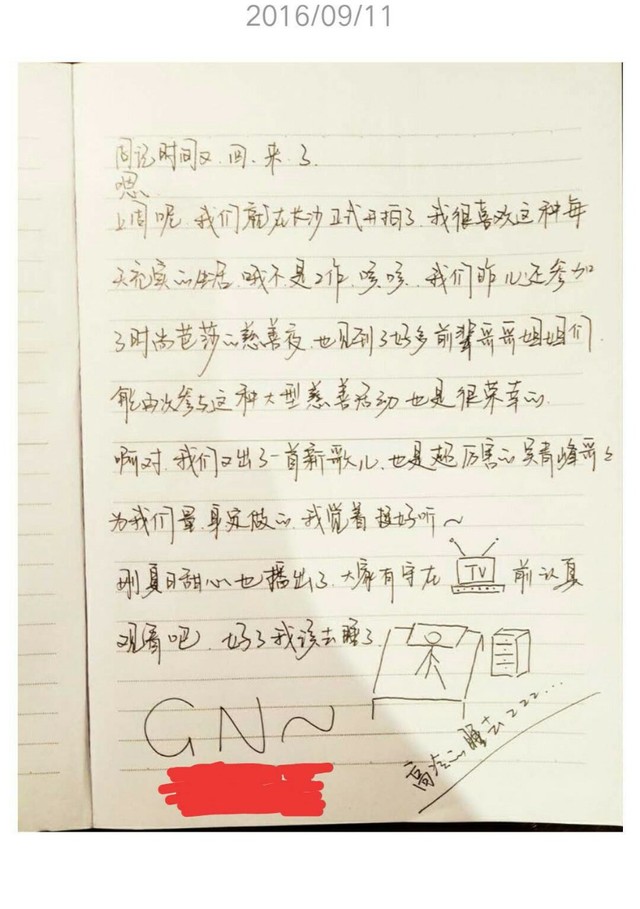 2016/09/11
周记时间又.回.来.了.
嗯.
上周呢.我们就在长沙正式开拍了.我很喜欢这种每
天充实的生活.哦不.是工作.咳咳..我们昨儿还参加
了时尚芭莎的慈善夜.也见到了好多前辈哥哥姐姐们.
能再次参与这种大型慈善活动也是很荣幸的.
啊对.我们又出了一首新歌儿.也是超厉害的吴青峰哥哥
为我们量.身定做的.我觉着挺好听~
刚夏日甜心也播出了.大家有守在 TV 前认真
观看吧.好了我该去睡了.
GN~
高冷的睡去zzz...